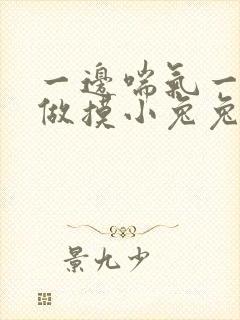 一邊喘氣一
做摸小兔兔
景九少